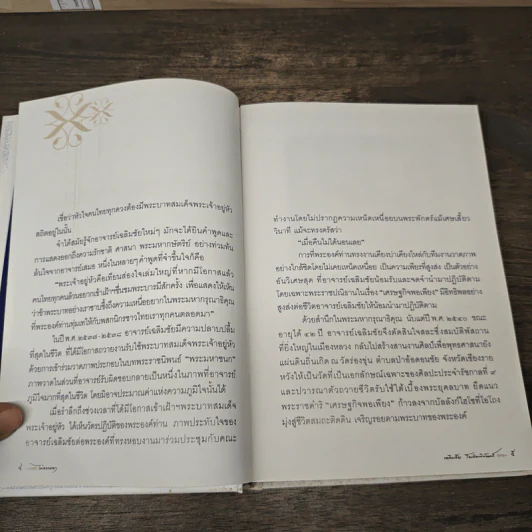 เชื่อว่าหัวใจคนไทยทุกดวงต้องมีพระบาทสมเด็จพระเจ้าอยู่หัว
สถิตอยู่ในนั้น
จำได้สมัยรู้จักอาจารย์เฉลิมชัยใหม่ๆ มักจะได้ยินคำพูดและ
การแสดงออกถึงความรักชาติ ศาสนา พระมหากษัตริย์ อย่างท่วมท้น
ล้นใจจากอาจารย์เสมอ หนึ่งในหลายๆ คำพูดที่จำขึ้นใจก็คือ
"พระเจ้าอยู่หัวคือเทียนส่องใจเล่มใหญ่ที่หากมีโอกาสแล้ว
คนไทยทุกคนล้วนอยากเข้าเฝ้าฯชื่นชมพระบารมีสักครั้ง เพื่อแสดงให้เห็น
ว่าข้าพระบาทอย่างเราซาบซึ้งถึงความเหนื่อยยากในพระมหากรุณาธิคุณ
ที่พระองค์ท่านทุ่มเทให้กับพสกนิกรชาวไทยเราทุกคนตลอดมา"
ในปี พ.ศ. ๒๕๓๗-๒๕๓๘ อาจารย์เฉลิมชัยมีความปลาบปลื้ม
ที่สุดในชีวิต ที่ได้มีโอกาสถวายงานรับใช้พระบาทสมเด็จพระเจ้าอยู่หัว
ด้วยการเข้าร่วมวาดภาพประกอบในบทพระราชนิพนธ์ "พระมหาชนก"
ภาพวาดในส่วนที่อาจารย์รับผิดชอบกลายเป็นหนึ่งในภาพที่อาจารย์
ภูมิใจมากที่สุดในชีวิต โดยมิอาจประมาณค่าแห่งความภูมิใจนั้นได้
เมื่อรำลึกถึงช่วงเวลาที่ได้มีโอกาสเข้าเฝ้าฯพระบาทสมเด็จ
พระเจ้าอยู่หัว ได้เห็นวัตรปฏิบัติของพระองค์ท่าน ภาพประทับใจของ
อาจารย์เฉลิมชัยต่อพระองค์ที่ทรงหอบงานมาร่วมประชุมกับคณะ
๔
ทำงานโดยไม่ปรากฏความเหนื่อยบนพระพักตร์แม้เศษเสี้ยว
วินาที แม้จะทรงตรัสว่า
"เมื่อคืนไม่ได้นอนเลย"
การที่พระองค์ท่านทรงงานเคียงบ่าเคียงไหล่กับทีมงานวาดภาพ
อย่างใกล้ชิดโดยไม่เคยเหน็ดเหนื่อย เป็นความเพียรที่สูงส่ง เป็นตัวอย่าง
อันวิเศษสุด ที่อาจารย์เฉลิมชัยน้อมรับและจดจำนำมาปฏิบัติตาม
โดยเฉพาะพระราชปณิธานในเรื่อง "เศรษฐกิจพอเพียง" มีอิทธิพลอย่าง
สูงส่งต่อชีวิตอาจารย์เฉลิมชัยให้น้อมนำมาปฏิบัติตาม
ด้วยสำนึกในพระมหากรุณาธิคุณ นับแต่ปี พ.ศ. ๒๕๔๐ ขณะ
อายุได้ ๔๒ ปี อาจารย์เฉลิมชัยจึงตัดสินใจสละซึ่งสมบัติพัสถาน
ที่ยิ่งใหญ่ในเมืองหลวง กลับไปสร้างสานงานศิลป์เพื่อพุทธศาสนายัง
แผ่นดินถิ่นเกิด ณ วัดร่องขุ่น ตำบลป่าอ้อดอนชัย จังหวัดเชียงราย
หวังให้เป็นวัดที่เป็นเอกลักษณ์เฉพาะของศิลปะประจำรัชกาลที่ ๙
และปวารณาตัวถวายชีวิตรับใช้ใต้เบื้องพระยุคลบาท ยึดแนว
พระราชดำริ "เศรษฐกิจพอเพียง" ก้าวลงจากบัลลังก์ไฮโซที่โอ่โถง
มุ่งสู่ชีวิตสมถะติดดิน เจริญรอยตามพระบาทของพระองค์
๕